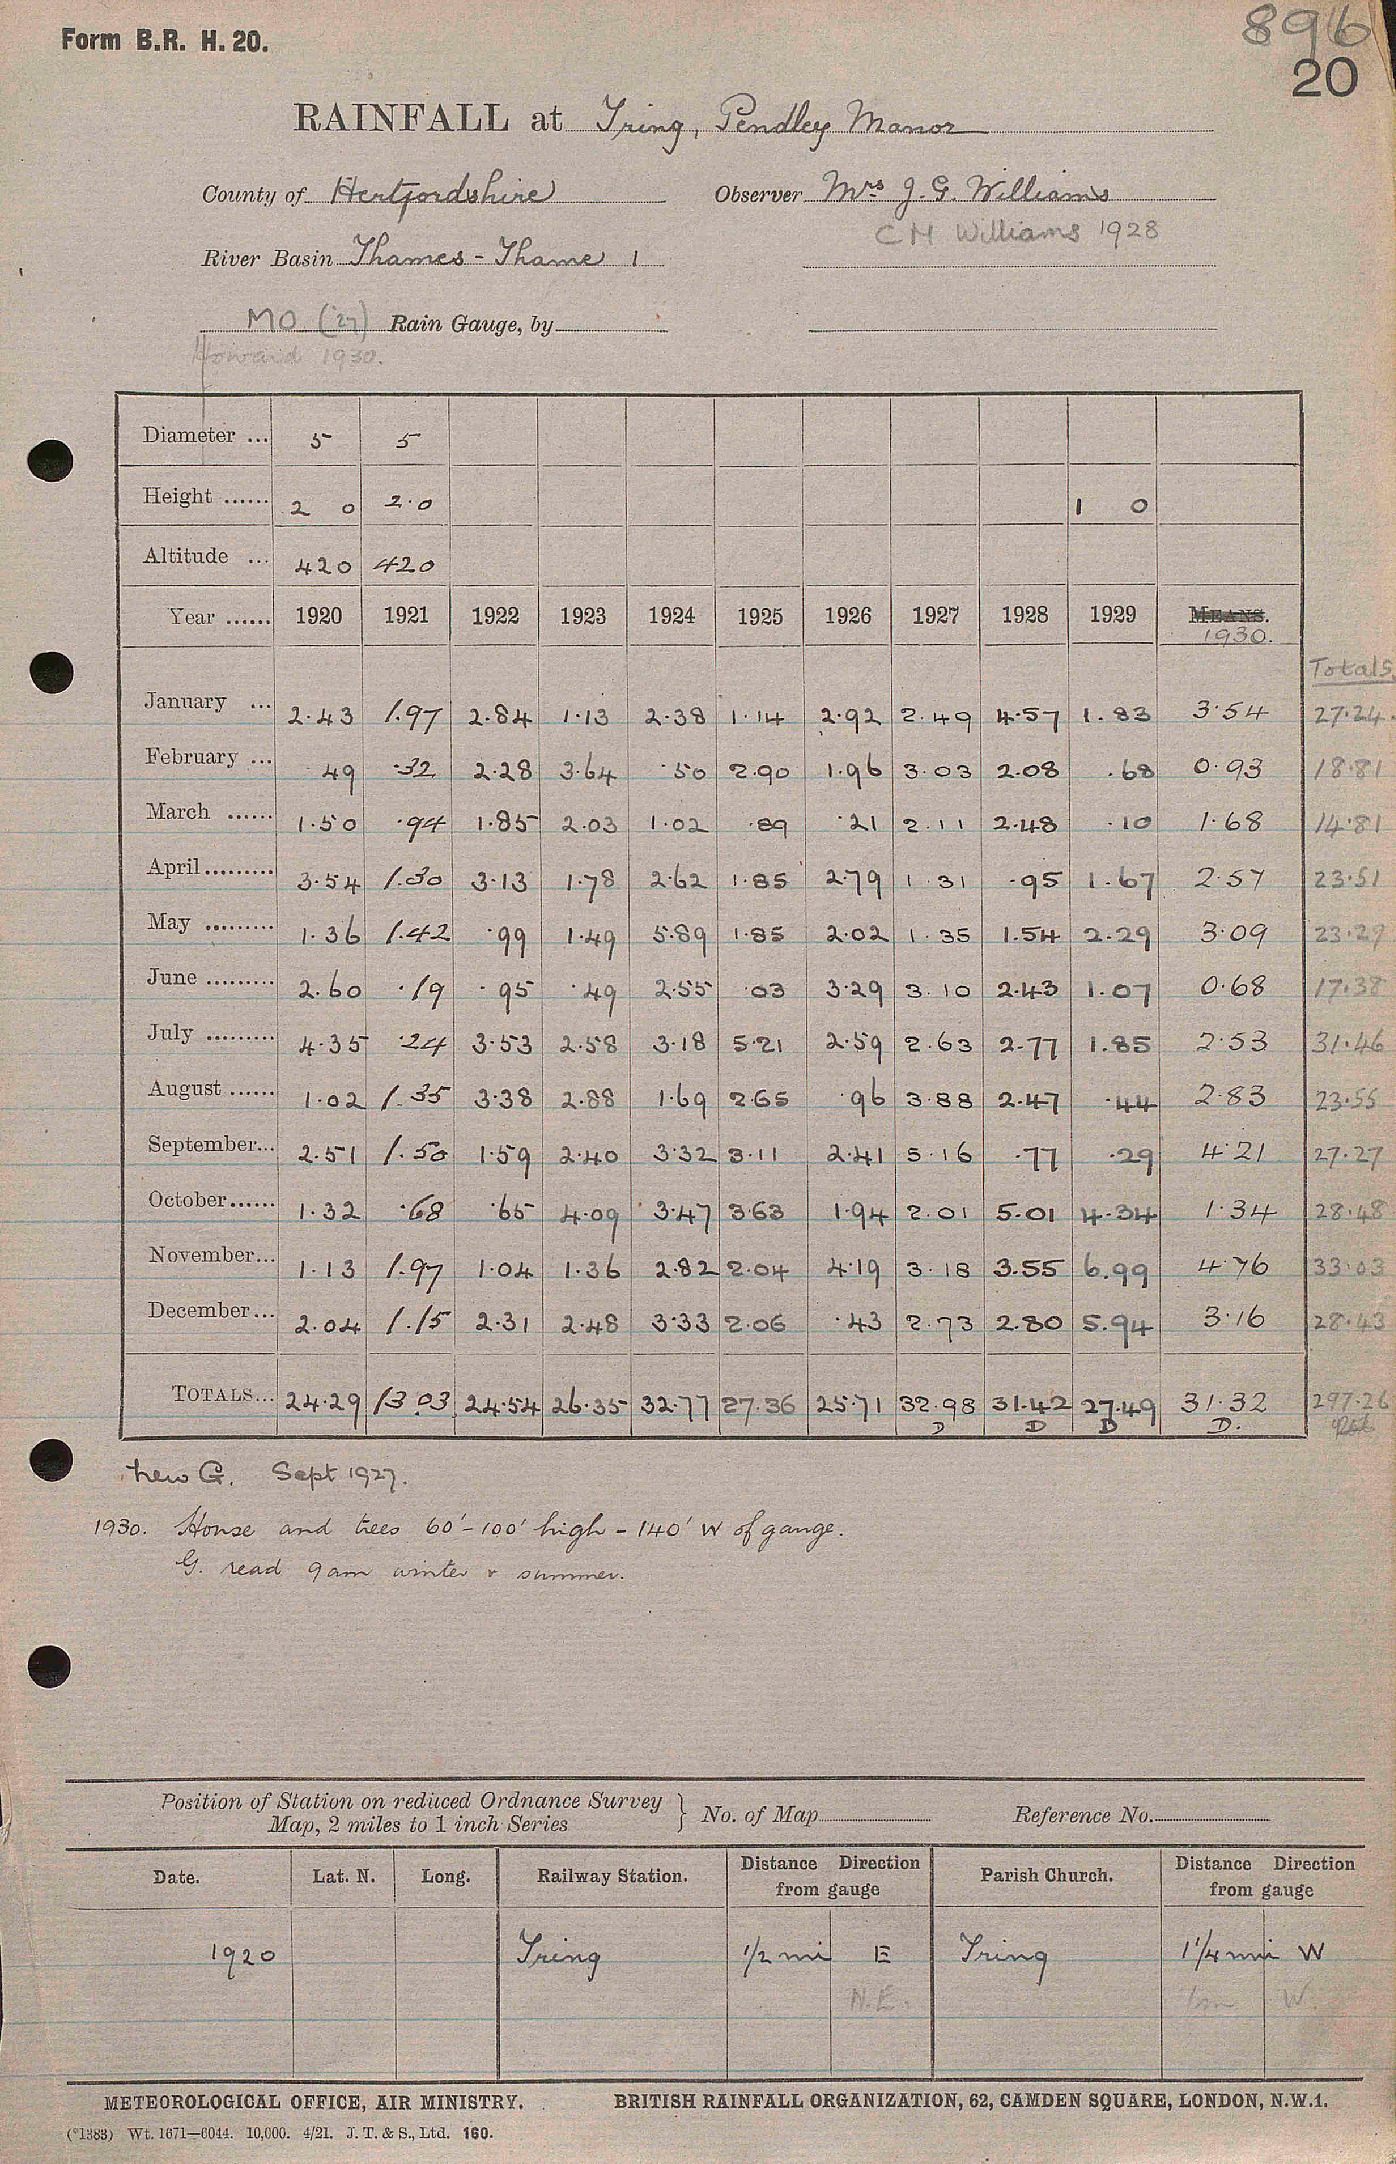 Form B.R. H. 20.
896
20
RAINFALL at Tring, Pendley Manor
County of Hertfordshire Observer Mrs J. G. Williams
C H Williams 1928
River Basin Thames - Thame 1
MO ('27) Rain Gauge, by
Howard 1930.
Diameter ... 5 5
Height ...... 2 0 2.0 1 0
Altitude ... 420 420
Year ...... 1920 1921 1922 1923 1924 1925 1926 1927 1928 1929 MEANS.
1930.
Totals
January ... 2.43 1.97 2.84 1.13 2.38 1.14 2.92 2.49 4.57 1.83 3.54 27.24
February ... 49 .32 2.28 3.64 .50 2.90 1.96 3.03 2.08 .68 0.93 18.81
March ...... 1.50 .94 1.85 2.03 1.02 .89 .21 2.11 2.48 .10 1.68 14.81
April ......... 3.54 1.30 3.13 1.78 2.62 1.85 2.79 1.31 .95 1.67 2.57 23.51
May ......... 1.36 1.42 .99 1.49 5.89 1.85 2.02 1.35 1.54 2.29 3.09 23.29
June ......... 2.60 .19 .95 .49 2.55 .03 3.29 3.10 2.43 1.07 0.68 17.38
July ......... 4.35 .24 3.53 2.58 3.18 5.21 2.59 2.63 2.77 1.85 2.53 31.46
August ...... 1.02 1.35 3.38 2.88 1.69 2.65 .96 3.88 2.47 .44 2.83 23.55
September... 2.51 1.50 1.59 2.40 3.32 3.11 2.41 5.16 .77 .29 4.21 27.27
October ...... 1.32 .68 .65 4.09 3.47 3.63 1.94 2.01 5.01 4.34 1.34 28.48
November... 1.13 1.97 1.04 1.36 2.82 2.04 4.19 3.18 3.55 6.99 4.76 33.03
December... 2.04 1.15 2.31 2.48 3.33 2.06 .43 2.73 2.80 5.94 3.16 28.43
TOTALS... 24.29 13.03 24.54 26.35 32.77 27.36 25.71 32.98 31.42 27.49 31.32 297.26
D D D D.
New G. Sept 1927.
1930. House and trees 60'-100' high - 140' W of gauge.
G. read 9am winter & summer.
Position of Station on reduced Ordnance Survey
Map, 2 miles to 1 inch Series } No. of Map Reference No.
Date. Lat. N. Long. Railway Station. Distance Direction from gauge Parish Church. Distance Direction from gauge
1920 Tring 1/2 mi E Tring 1 1/4 mi W
N.E. W.
METEOROLOGICAL OFFICE, AIR MINISTRY. BRITISH RAINFALL ORGANIZATION, 62, CAMDEN SQUARE, LONDON, N.W.1.
(*1383) Wt. 1671—6044. 10,000. 4/21. J. T. & S., Ltd. 160.